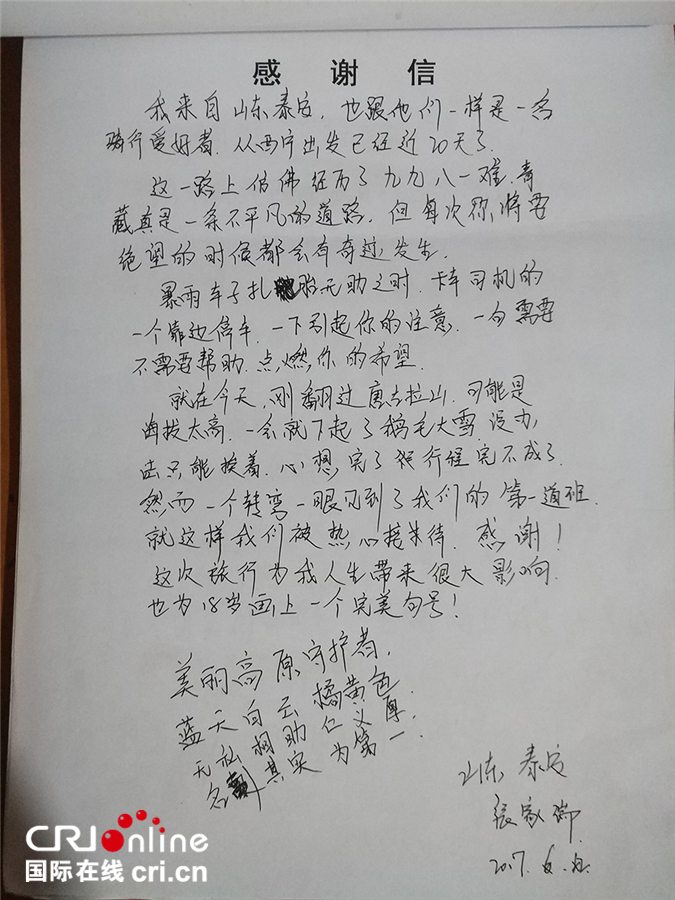 感 谢 信
我来自山东泰安，也跟他们一样是一名
骑行爱好者. 从西宁出发已经近20天了.
这一路上仿佛经历了九九八一难. 青
藏真是一条不平凡的道路. 但每次你将要
绝望的时候都会有奇迹发生.
暴雨车子扎胎无助之时. 卡车司机的
一个靠边停车. 一下引起你的注意. 一句需要
不需要帮助. 点燃你的希望.
就在今天, 刚翻过唐古拉山. 可能是
海拔太高. 一会就下起了鹅毛大雪 没办
法只能挨着. 心想, 完了 行程完不成了.
然而一个转弯一眼见到了我们的第一道班.
就这样我们被热心接待. 感谢!
这次旅行为我人生带来很大影响.
也为18岁画上一个完美句号!
美丽高原守护者,
蓝天白云橘黄色.
无私相助仁义厚.
名其实为第一.
山东 泰安
张家
2017.6.
CRIonline
国际在线 cri.cn